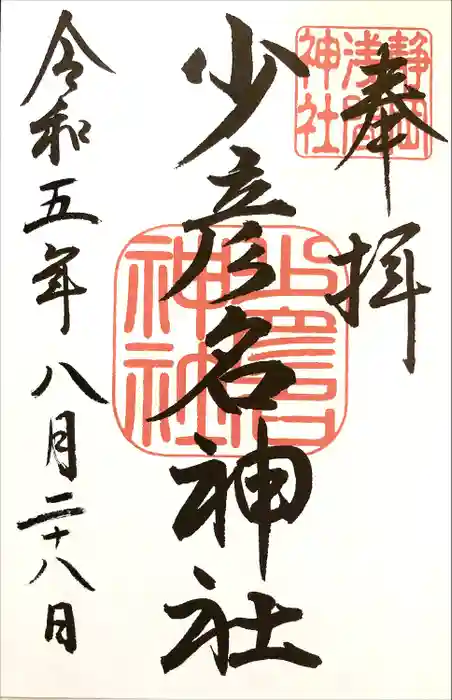 奉拝
静岡
浅間
神社
少彦名神社
少彦名
神社
令和五年八月二十八日